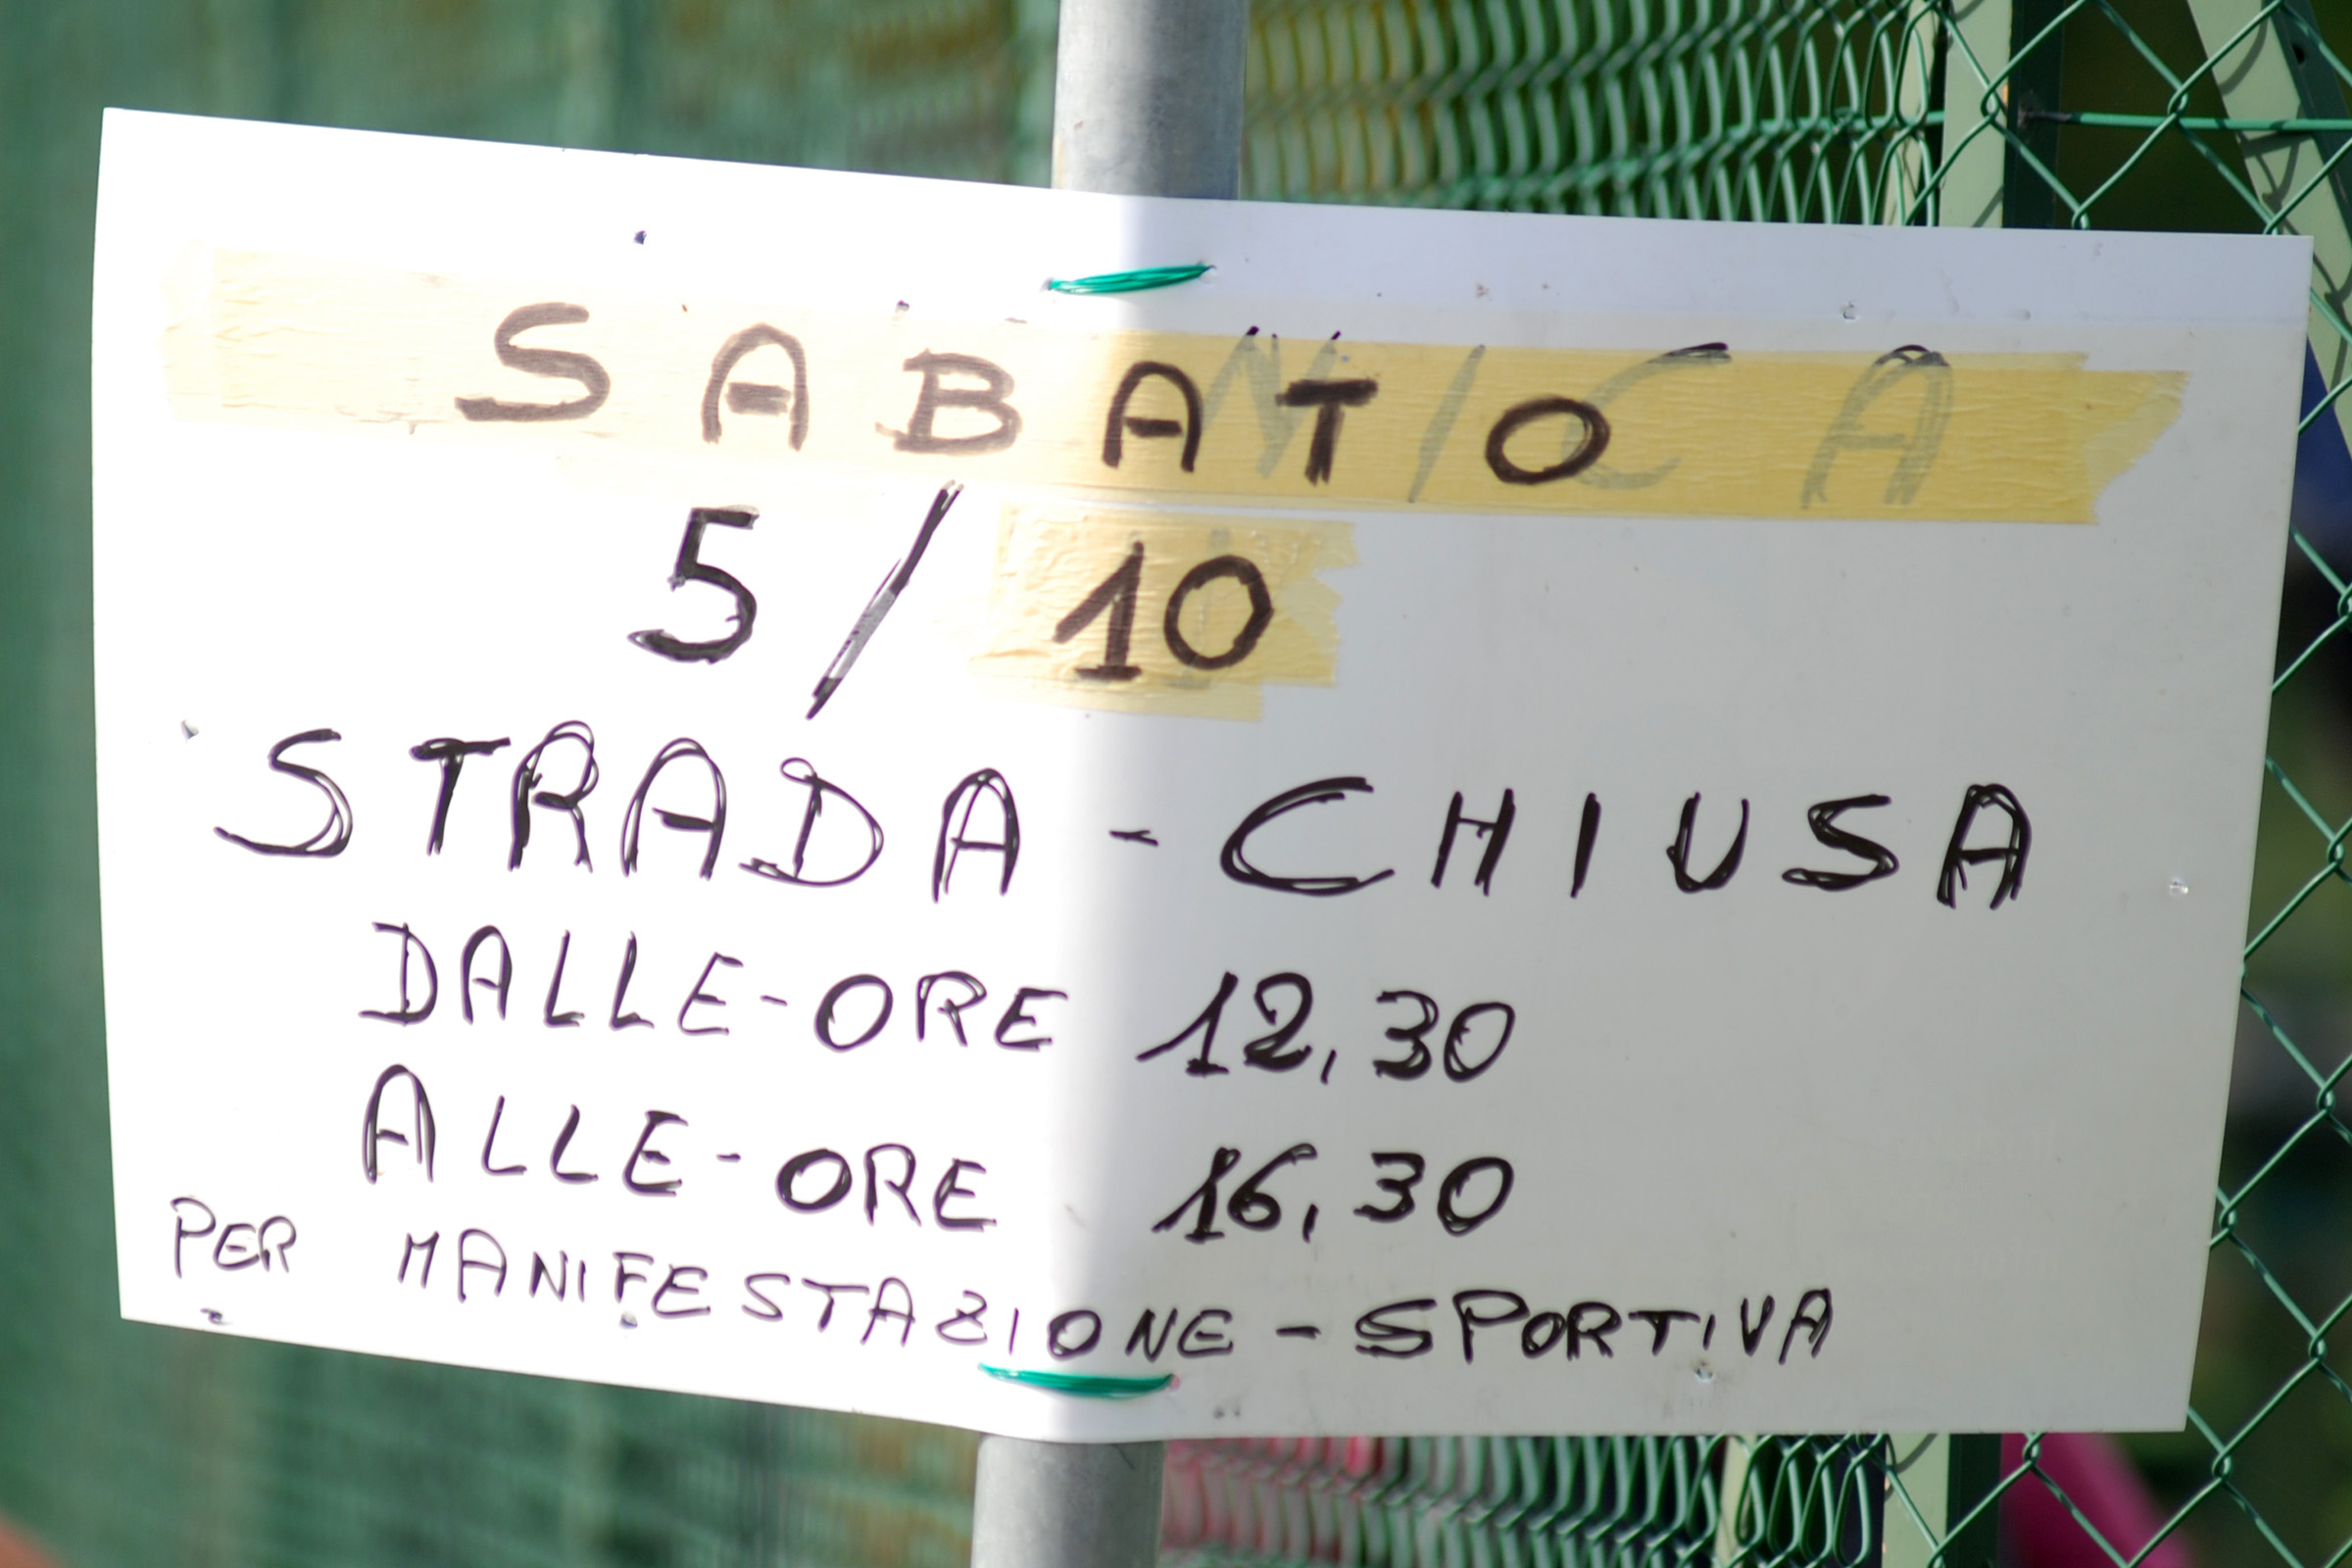 SABATO
5/10
STRADA - CHIUSA
DALLE-ORE 12,30
ALLE-ORE 16,30
PER MANIFESTAZIONE - SPORTIVA